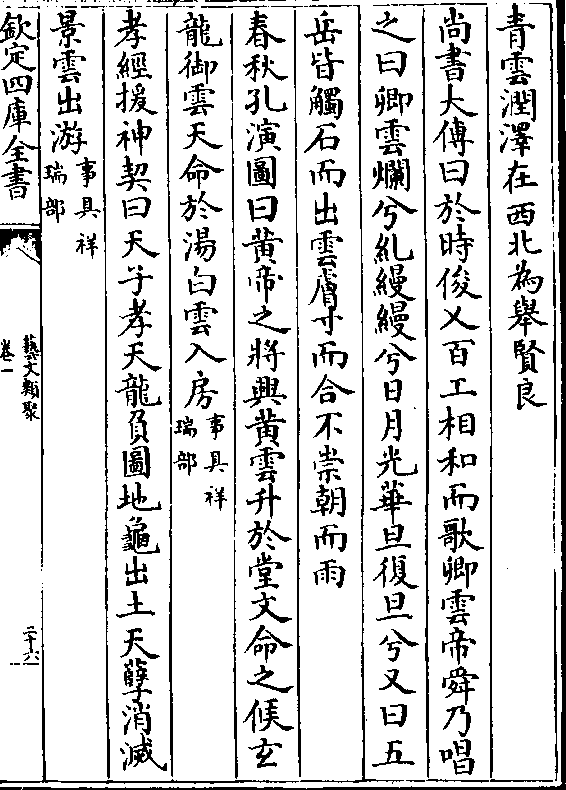 青雲潤澤在西北為舉賢良
尚書大傳曰於時俊乂百工相和而歌卿雲帝舜乃唱
之曰卿雲爛兮糺縵縵兮日月光華旦復旦兮又曰五
岳皆觸石而出雲膚寸而合不崇朝而雨
春秋孔演圖曰黄帝之將興黄雲升於堂文命之候玄
龍御雲天命於湯白雲入房事具祥瑞部
孝經援神契曰天子孝天龍負圖地龜出土天孽消滅
景雲出游事具祥瑞部
欽定四庫全書
藝文類聚
卷一
二十六